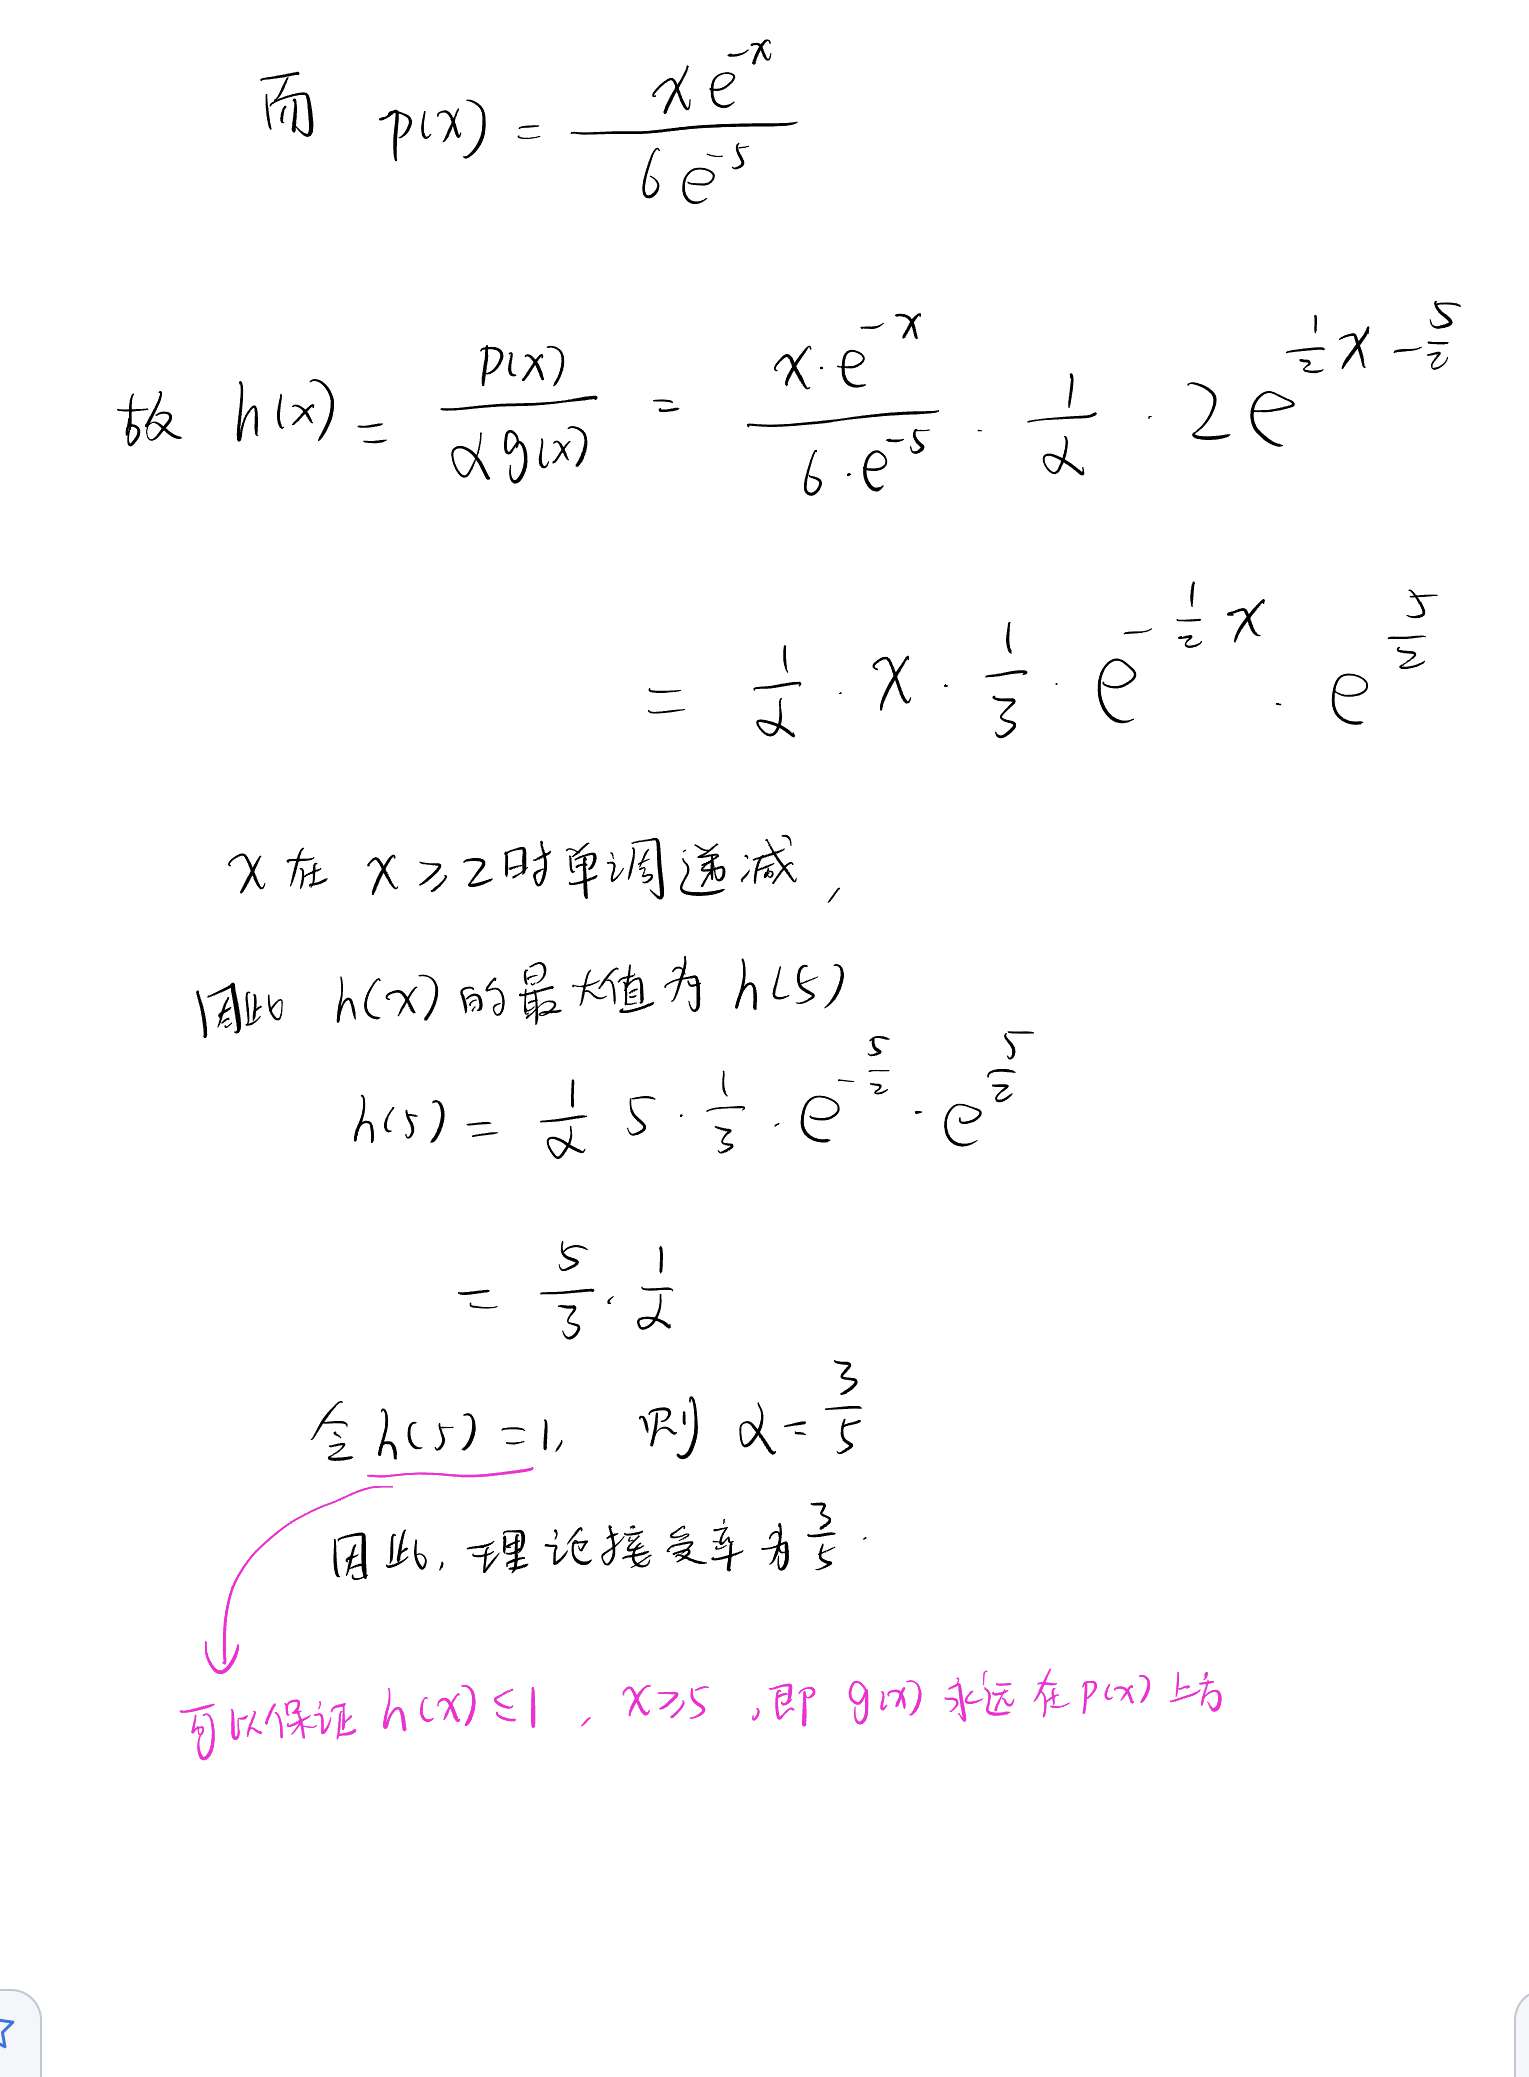 而 p(x) = \frac{x e^{-x}}{6 e^{-5}}
故 h(x) = \frac{p(x)}{α g(x)} = \frac{x·e^{-x}}{6·e^{-5}} · \frac{1}{α} · 2e^{\frac{1}{2}x - \frac{5}{2}}
= \frac{1}{α} · x · \frac{1}{3} · e^{-\frac{1}{2}x} · e^{\frac{5}{2}}
x 在 x ≥ 2时单调递减,
因此 h(x)的最大值为 h(5)
h(5) = \frac{1}{α} 5 · \frac{1}{3} · e^{-\frac{5}{2}} · e^{\frac{5}{2}}
= \frac{5}{3} · \frac{1}{α}
令 h(5) = 1, 则 α = \frac{3}{5}
因此, 理论接受率为 \frac{3}{5}.
可以保证 h(x) ≤ 1, x ≥ 5, 即 g(x) 永远在 p(x) 上方